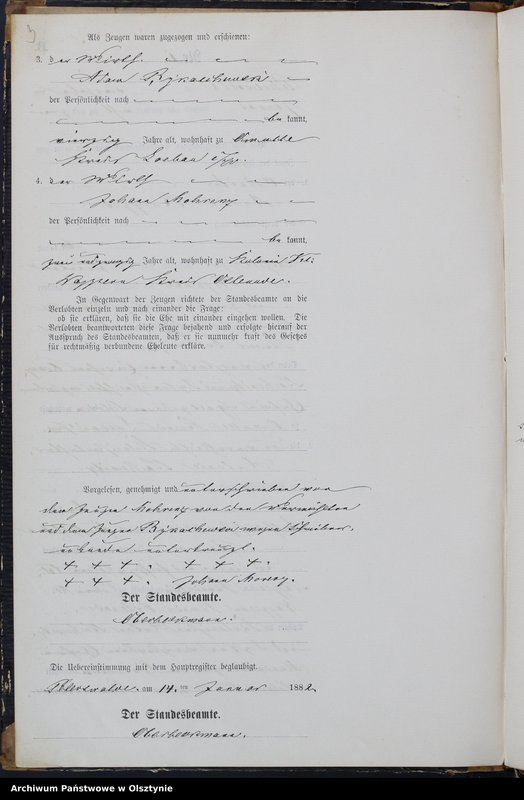 3
Als Zeugen waren zugezogen und erschienen:
3. der Wirth
Adam Rykaczewski
der Persönlichkeit nach
be kannt,
vierzig Jahre alt, wohnhaft zu
Kreis Loebau
4. der Wirth
Johann
der Persönlichkeit nach
be kannt,
zwei und zwanzig Jahre alt, wohnhaft zu Kolonie
Kreis Osterode.
In Gegenwart der Zeugen richtete der Standesbeamte an die
Verlobten einzeln und nach einander die Frage:
ob sie erklären, daß sie die Ehe mit einander eingehen wollen. Die
Verlobten beantworteten diese Frage bejahend und erfolgte hierauf der
Ausspruch des Standesbeamten, daß er sie nunmehr kraft des Gesetzes
für rechtmäßig verbundene Eheleute erkläre.
Vorgelesen, genehmigt und unterschrieben von
dem Zeugen von den Vermählten
und dem Zeugen wegen Schreibens-
unkunde unterkreuzt.
+ + + . + + + .
+ + + . Johann
Der Standesbeamte.
Die Uebereinstimmung mit dem Hauptregister beglaubigt.
am 14. ten Januar 1882.
Der Standesbeamte.
Archiwum Państwowe w Olsztynie